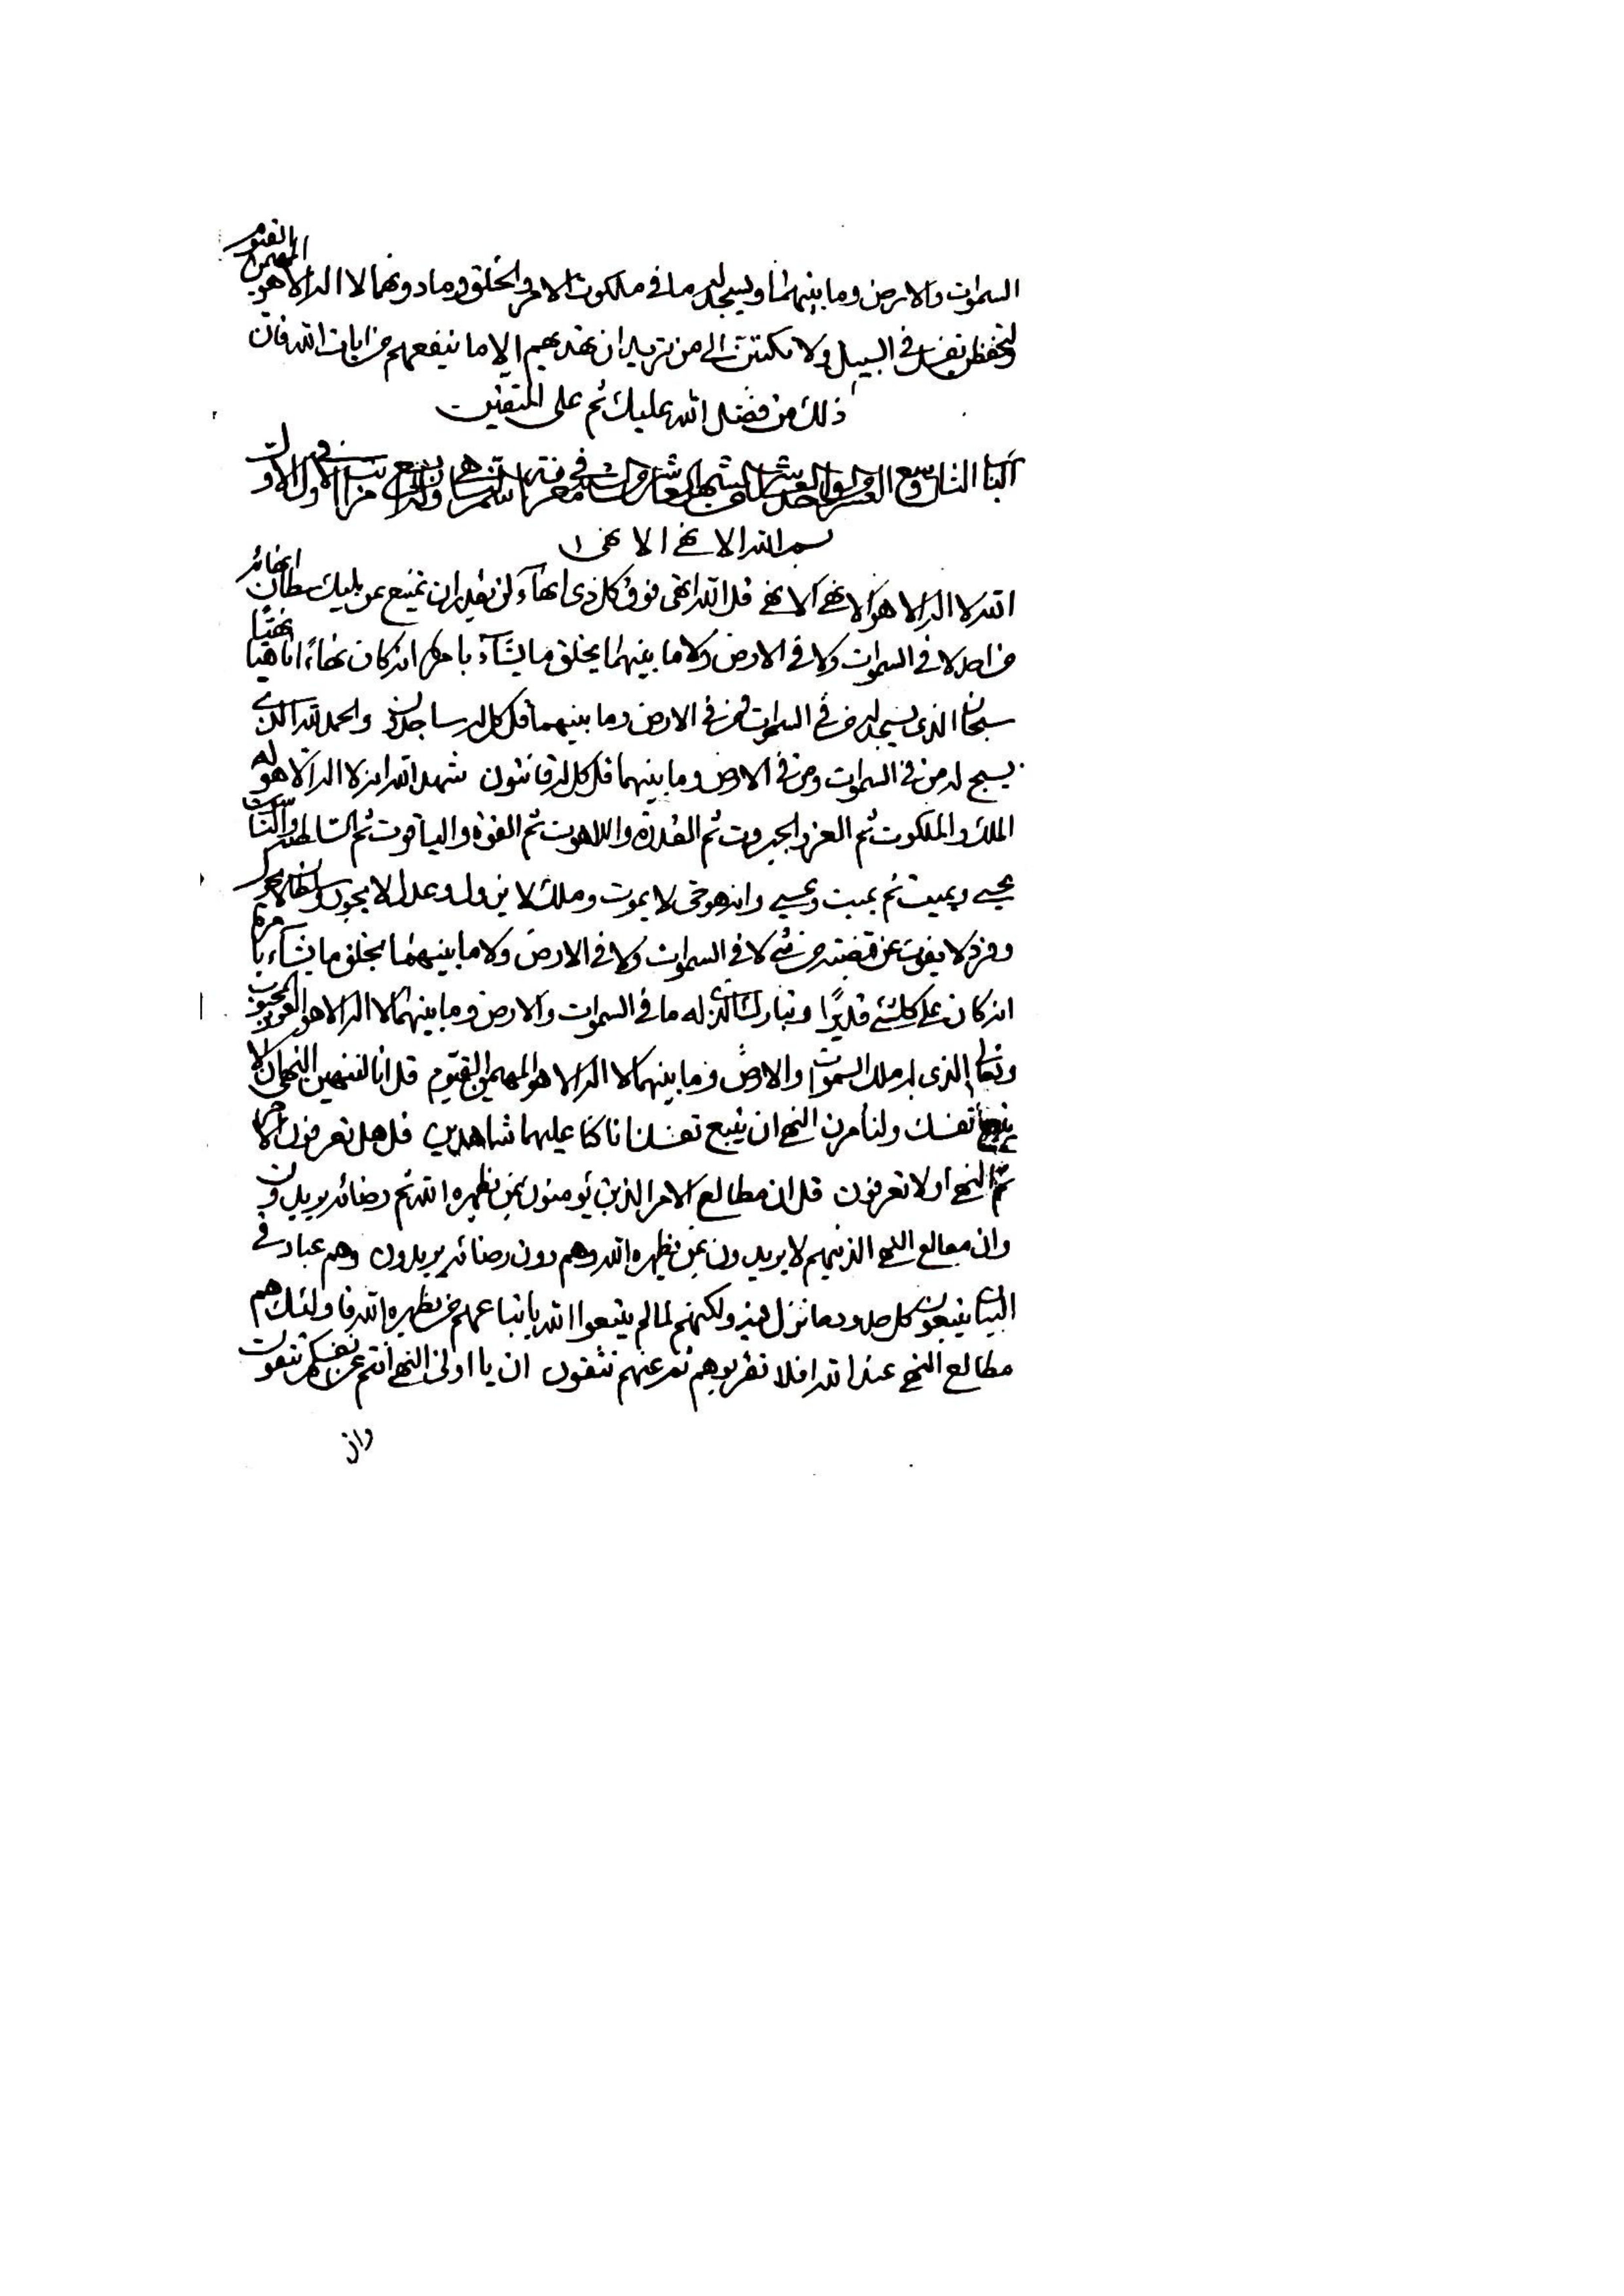 السموات والارض وما بينهما ويسجد له ما في ملكوت الامر والخلق وما دونهما لا اله الا هو المهيمن القيوم
ولتحفظن نفسك في السبيل ولا تكتبن الى من تريد ان تهديهم الا ما ينفعهم من ايات الله فان
ذلك من فضل الله عليك ثم على المتقين
بسم الله الانهى الانهى
الله لا اله الا هو الانهى الانهى قل الله انهى فوق كل ذى انهاء لن يقدر ان يمتنع عن مليك سلطان انهائه
من احد لا في السموات ولا في الارض ولا ما بينهما يخلق ما يشاء بامره انه كان نهاء ناهيا نهيا
سبحان الذى يسجد له من في السموات ومن في الارض وما بينهما قل كل له ساجدون والحمد لله الذى
يسبح له من في السموات ومن في الارض وما بينهما قل كل له قانتون شهد الله انه لا اله الا هو له
الملك والملكوت ثم العز والجبروت ثم القدرة واللاهوت ثم القوة والياقوت ثم السلطنة والناسوت
يحيى ويميت ثم يميت ويحيى وانه هو حى لا يموت وملك لا يزول وعدل لا يجور وسلطان لا يحول
وفرد لا يفوت عن قبضته من شئ لا في السموات ولا في الارض ولا ما بينهما يخلق ما يشاء بامره
انه كان على كلشئ قديرا وتبارك الذى له ما في السموات والارض وما بينهما لا اله الا هو العزيز المحبوب
وتعالى الذى له ملك السموات والارض وما بينهما لا اله الا هو المهيمن القيوم قل انا لننهين النهى ان لا
نفسك ولنأمرن النهى ان يتبع نفسك انا كنا عليهما شاهدين قل هل تعرفون الامر
ثم النهى او لا تعرفون قل ان مطالع الامر الذين يؤمنون بمن يظهره الله ثم رضائه يريدون
وان مطالع النهى الذينهم لا يريدون بمن يظهره الله وهم دون رضائه يريدون وهم عباد في
البيان يتبعون كل حدود ما نزل فيه ولكنهم لما لم يتبعوا الله باتباعهم من يظهره الله فاولئك هم
مطالع النهى عند الله افلا تقربوهم ثم عنهم تتقون ان يا اولى النهى انتم عن نفسكم تتقون
وان